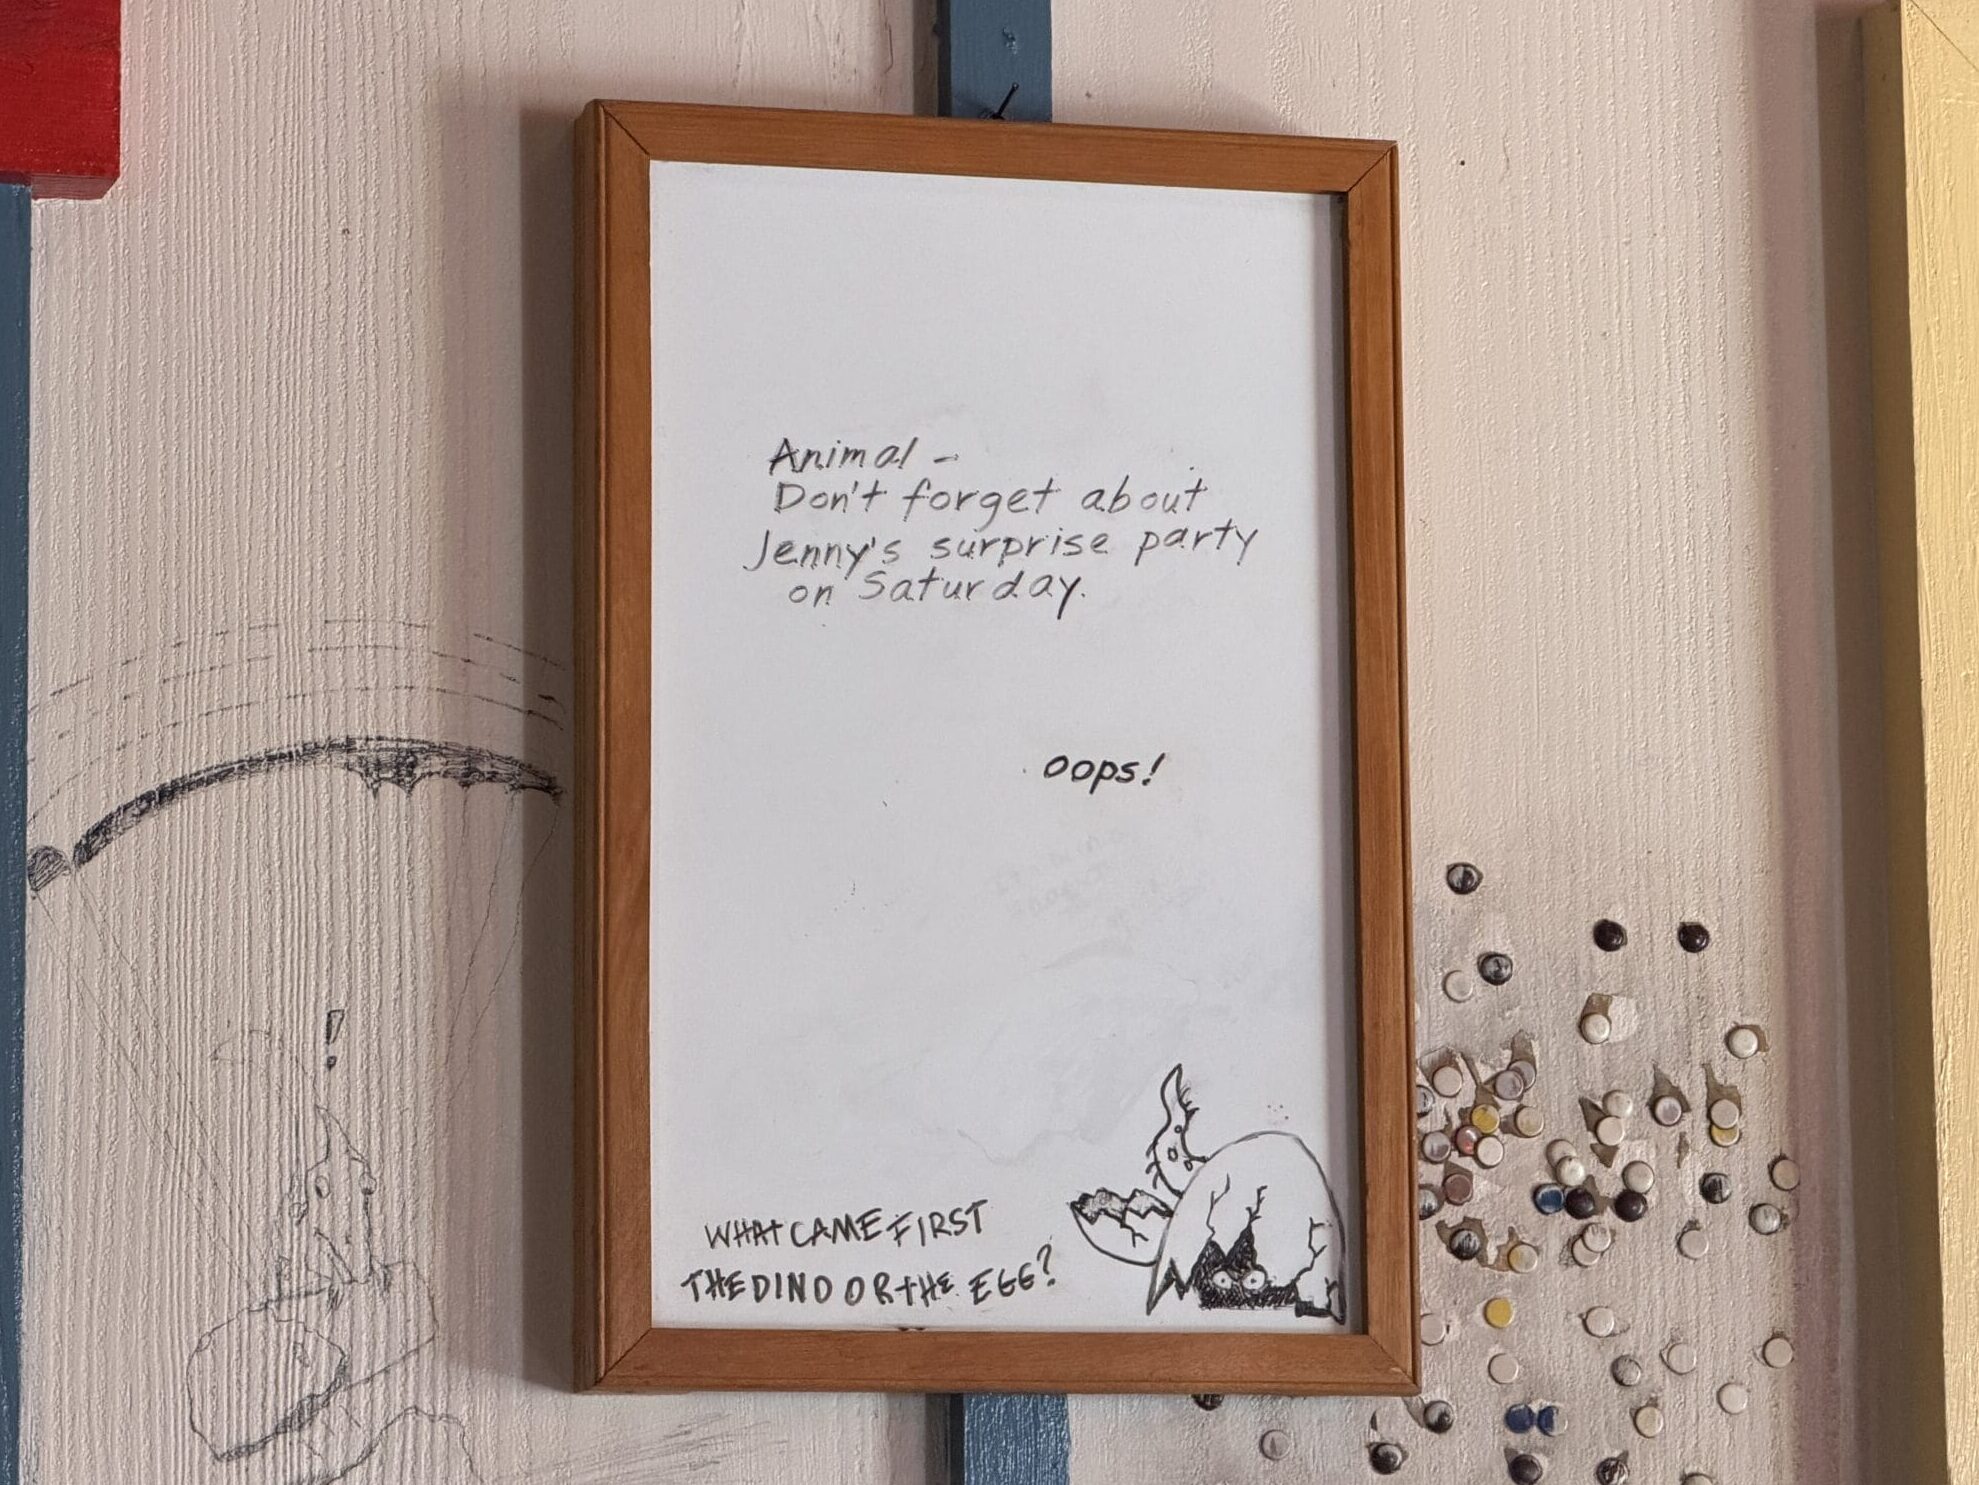 Animal -
Don't forget about
Jenny's surprise party
on Saturday.
oops!
WHAT CAME FIRST
THE DINO OR THE EGG?
!